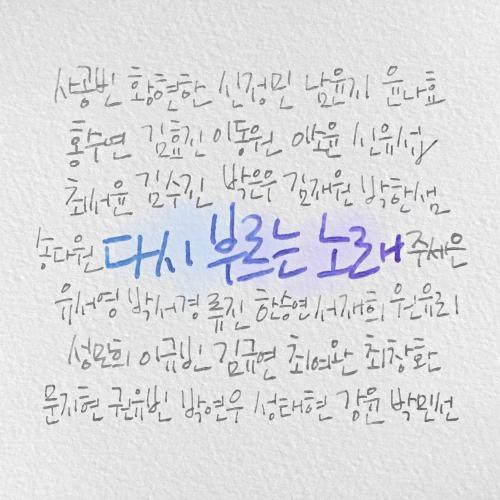 사공빈 황현한 신정민 남윤지 윤나효
홍수연 김효진 이동원 이소윤 신유섭
최서윤 김수진 박은우 김재원 박한샘
송다원 다시 부르는 노래 주세은
유서영 박서경 류진 한승연 서재희 우유리
성문희 이규빈 김규연 최여완 최창환
문지현 권유빈 박연우 성태현 강윤 박민선